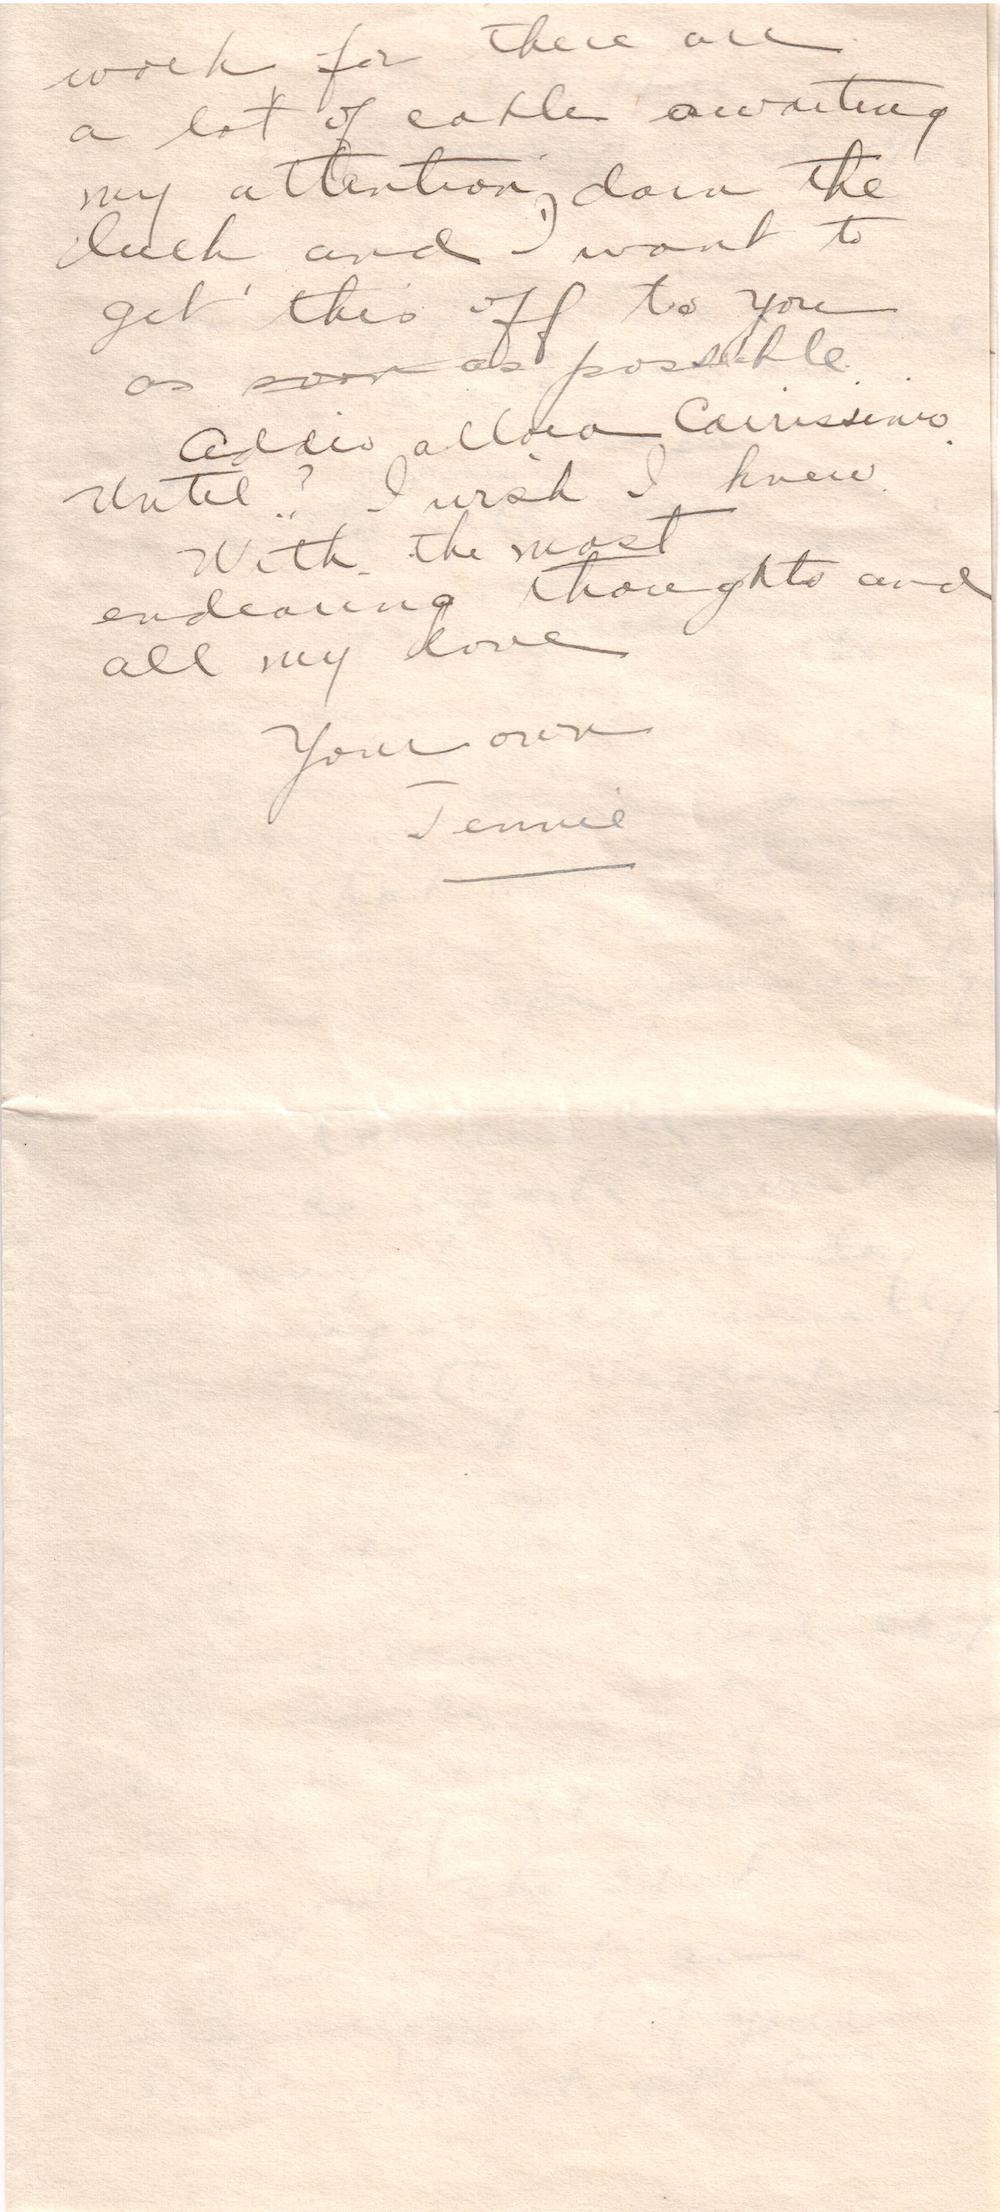 work for there are
a lot of cable awaiting
my attention, darn the
luck and I want to
get this off to you
as soon as possible
Addio allora Carissimo.
Until..? I wish I knew.
With the most
endearing thoughts and
all my love
Your own
Jennie